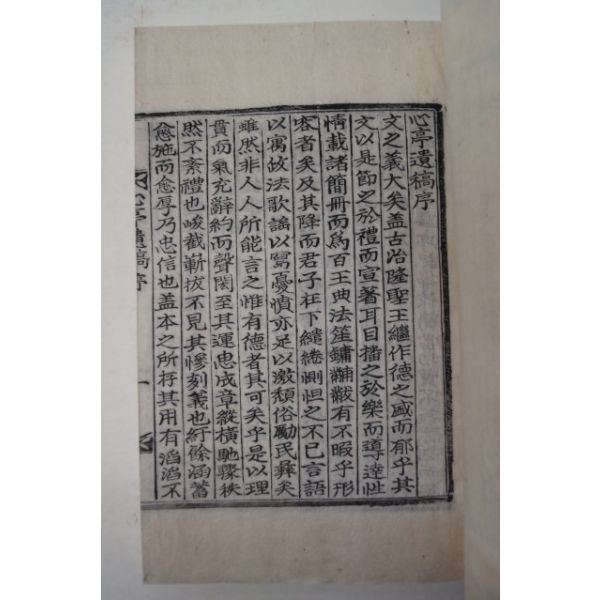 心亭遺稿序
文之義大矣盖古治隆聖王繼作德之盛而郁乎其
文以是節之於禮而宣著耳目播之於樂而導達性
情載諸簡冊而爲百王典法笙鏞黼黻有不暇乎形
容者矣及其降而君子在下繾綣惻怛之不已言語
以寓故法歌謠以寫憂憤亦足以激頹俗勵民彛矣
雖然非人人所能言之惟有德者其可矣乎是以理
貫而氣充辭約而聲閎至其運忠成章縱橫馳驟秩
然不紊禮也峻截嶄拔不見其慘刻義也紆餘涵蓄
愈施而愈厚乃忠信也盖本之所存其用有滔滔不
心亭遺稿序
一